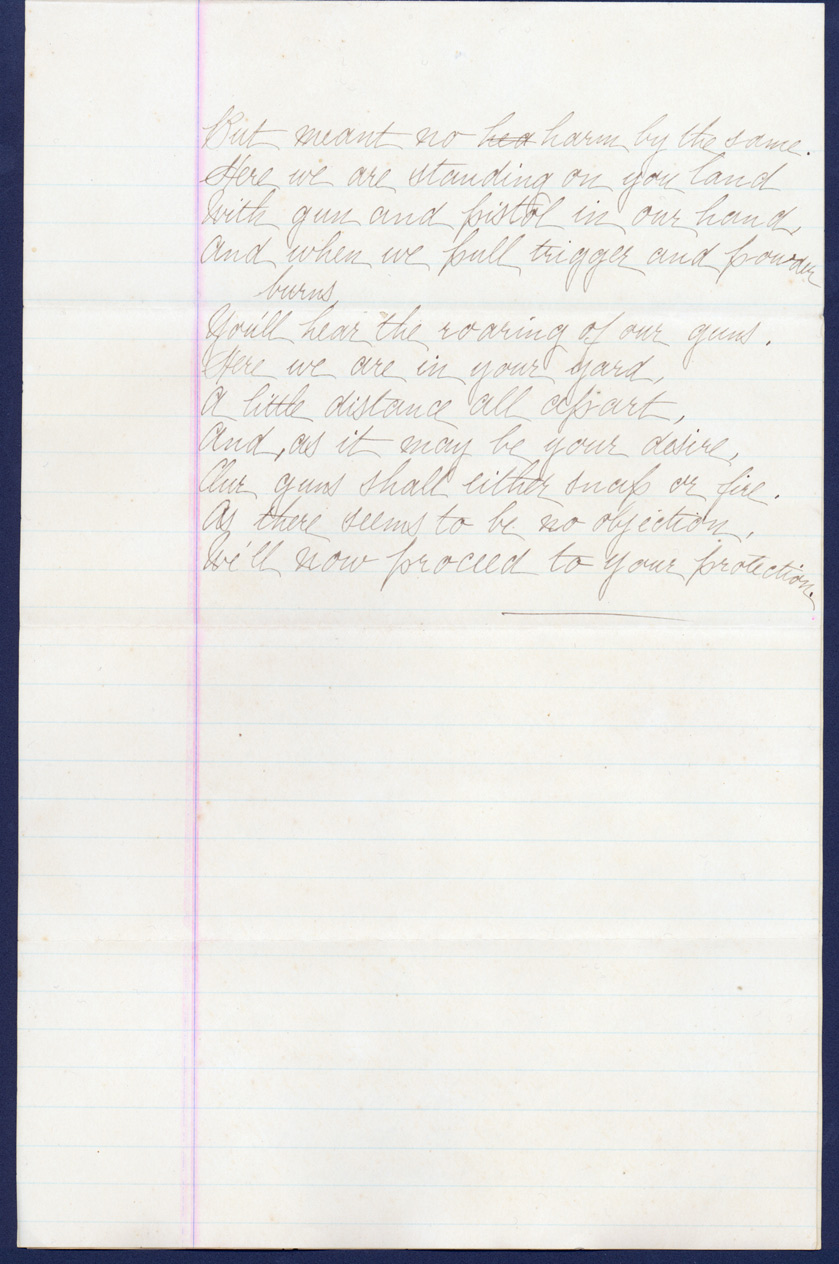 But meant no hea harm by the same.
Here we are standing on you land
With gun and pistol in our hand,
And when we pull trigger and powder
burns,
You'll hear the roaring of our guns.
Here we are in your yard,
A little distance all apart,
And, as it may be your desire,
Our guns shall either snap or fire.
As there seems to be no objection,
We'll now proceed to your protection.